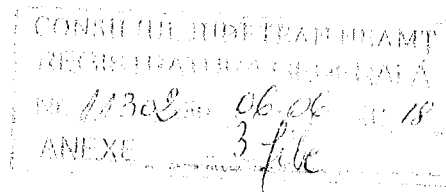 CONSILIUL JUDEŢEAN NEAMŢ
REGISTRATURA GENERALĂ
NR. 11302 06.06 18
ANEXE 3 file